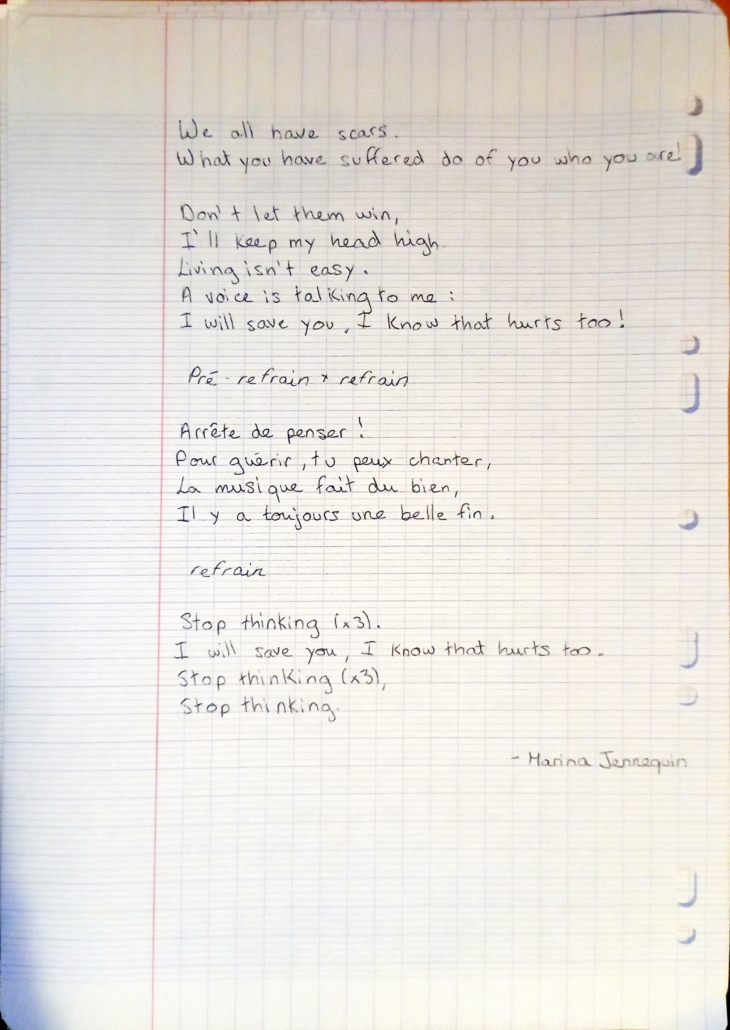 We all have scars.
What you have suffered do of you who you are!
Don't let them win,
I'll keep my head high.
Living isn't easy.
A voice is talking to me :
I will save you, I know that hurts too!
Pré-refrain + refrain
Arrête de penser !
Pour guérir, tu peux chanter,
La musique fait du bien,
Il y a toujours une belle fin.
refrain
Stop thinking (x3).
I will save you, I know that hurts too.
Stop thinking (x3),
Stop thinking.
- Marina Jennequin